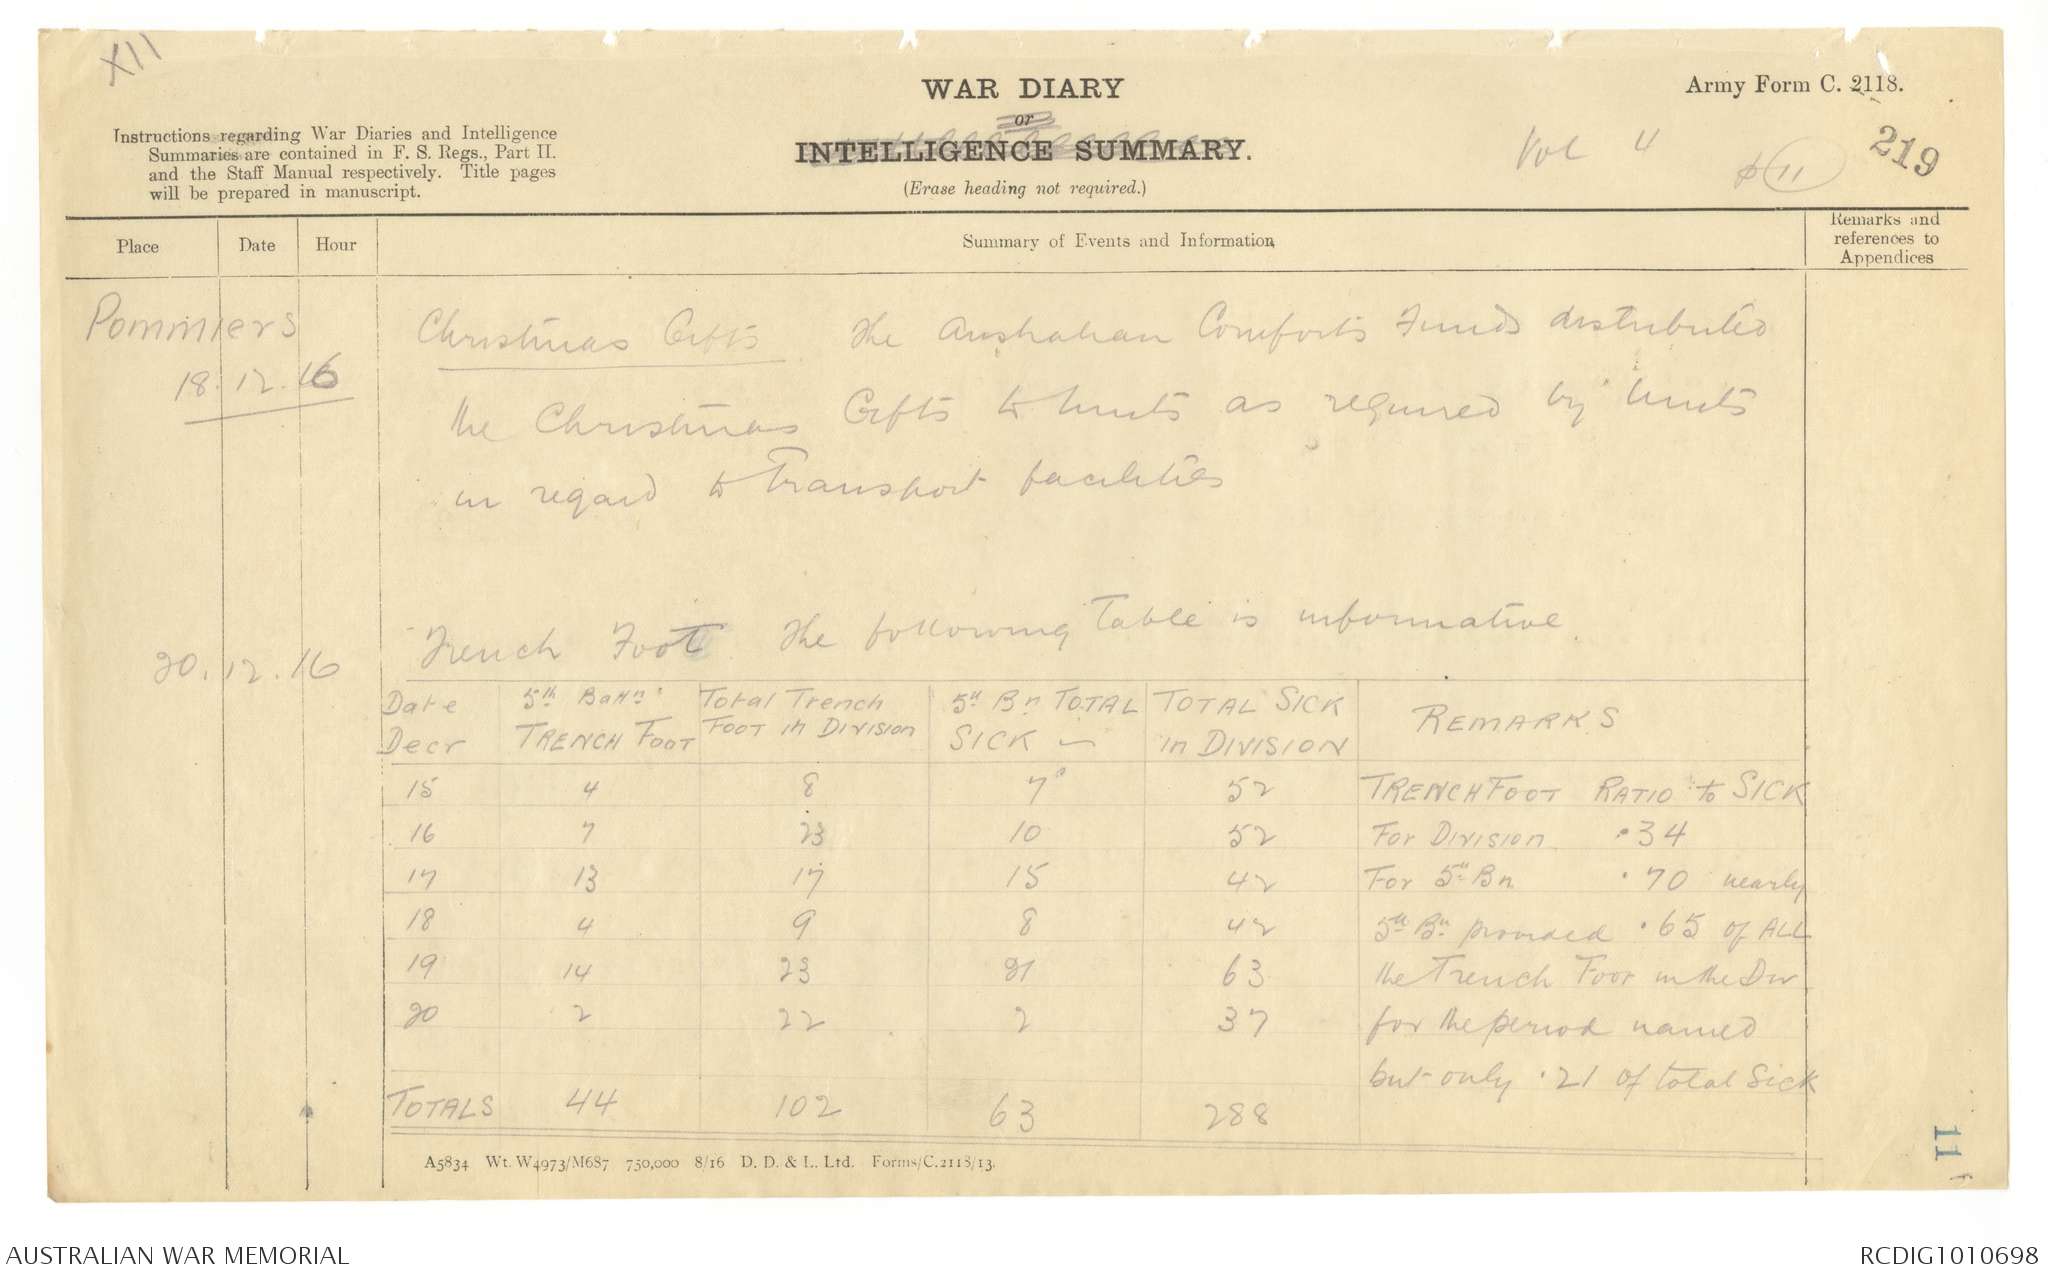 XII
WAR DIARY
or
INTELLIGENCE SUMMARY.
(Erase heading not required.)
Army Form C. 2118.
Instructions regarding War Diaries and Intelligence
Summaries are contained in F. S. Regs., Part II.
and the Staff Manual respectively. Title pages
will be prepared in manuscript.
Vol 4
11
219
Place Date Hour Summary of Events and Information Remarks and references to Appendices
Pommiers
18.12.16
Christmas Gifts The Australian Comforts Funds distributed
the Christmas Gifts to Units as required by Units
in regard to Transport facilities
20.12.16
Trench Foot. The following Table is informative.
Date Decr 5th Battn. TRENCH FOOT Total Trench FOOT in DIVISION 5th Bn TOTAL SICK TOTAL SICK in DIVISION REMARKS
15 4 8 7 52 TRENCH FOOT RATIO to SICK
16 7 23 10 52 For DIVISION .34
17 13 17 15 42 For 5th Bn .70 nearly
18 4 9 8 42 5th Bn provided .65 of ALL
19 14 23 21 63 the Trench Foot in the Div
20 2 22 2 37 for the period named
but only .21 of total Sick
TOTALS 44 102 63 288
A5834 Wt. W4973/M687 750,000 8/16 D. D. & L. Ltd. Forms/C.2118/13.
11
AUSTRALIAN WAR MEMORIAL
RCDIG1010698